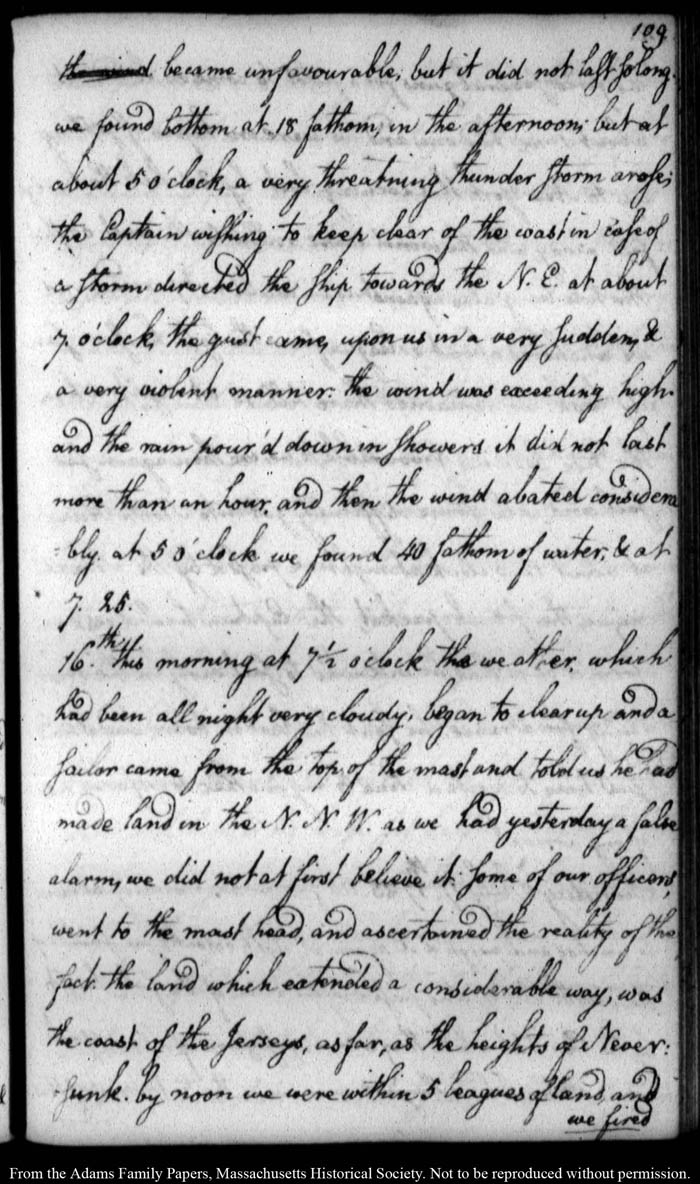 109
the wind became unfavourable; but it did not last so long.
we found bottom at 18 fathom, in the afternoon; but at
about 5 o'clock, a very threatning thunder storm arose;
the Captain wishing to keep clear of the coast in case of
a storm directed the ship towards the N. E. at about
7. o'clock, the gust came, upon us in a very sudden, &
a very violent manner. the wind was exceeding high.
and the rain pour'd down in showers it did not last
more than an hour, and then the wind abated considera
-bly. at 5 o'clock we found 40 fathom of water; & at
7. 25.
16.th this morning at 7 1/2 o'clock the weather, which
had been all night very cloudy, began to clear up and a
sailor came from the top of the mast and told us he had
made land in the N. N. W. as we had yesterday a false
alarm, we did not at first believe it. some of our officers,
went to the mast head, and ascertained the reality of the
fact. the land which extended a considerable way, was
the coast of the Jerseys, as far, as the heights of Never:
-sunk. by noon we were within 5 leagues of land, and
we fired
From the Adams Family Papers, Massachusetts Historical Society. Not to be reproduced without permission.